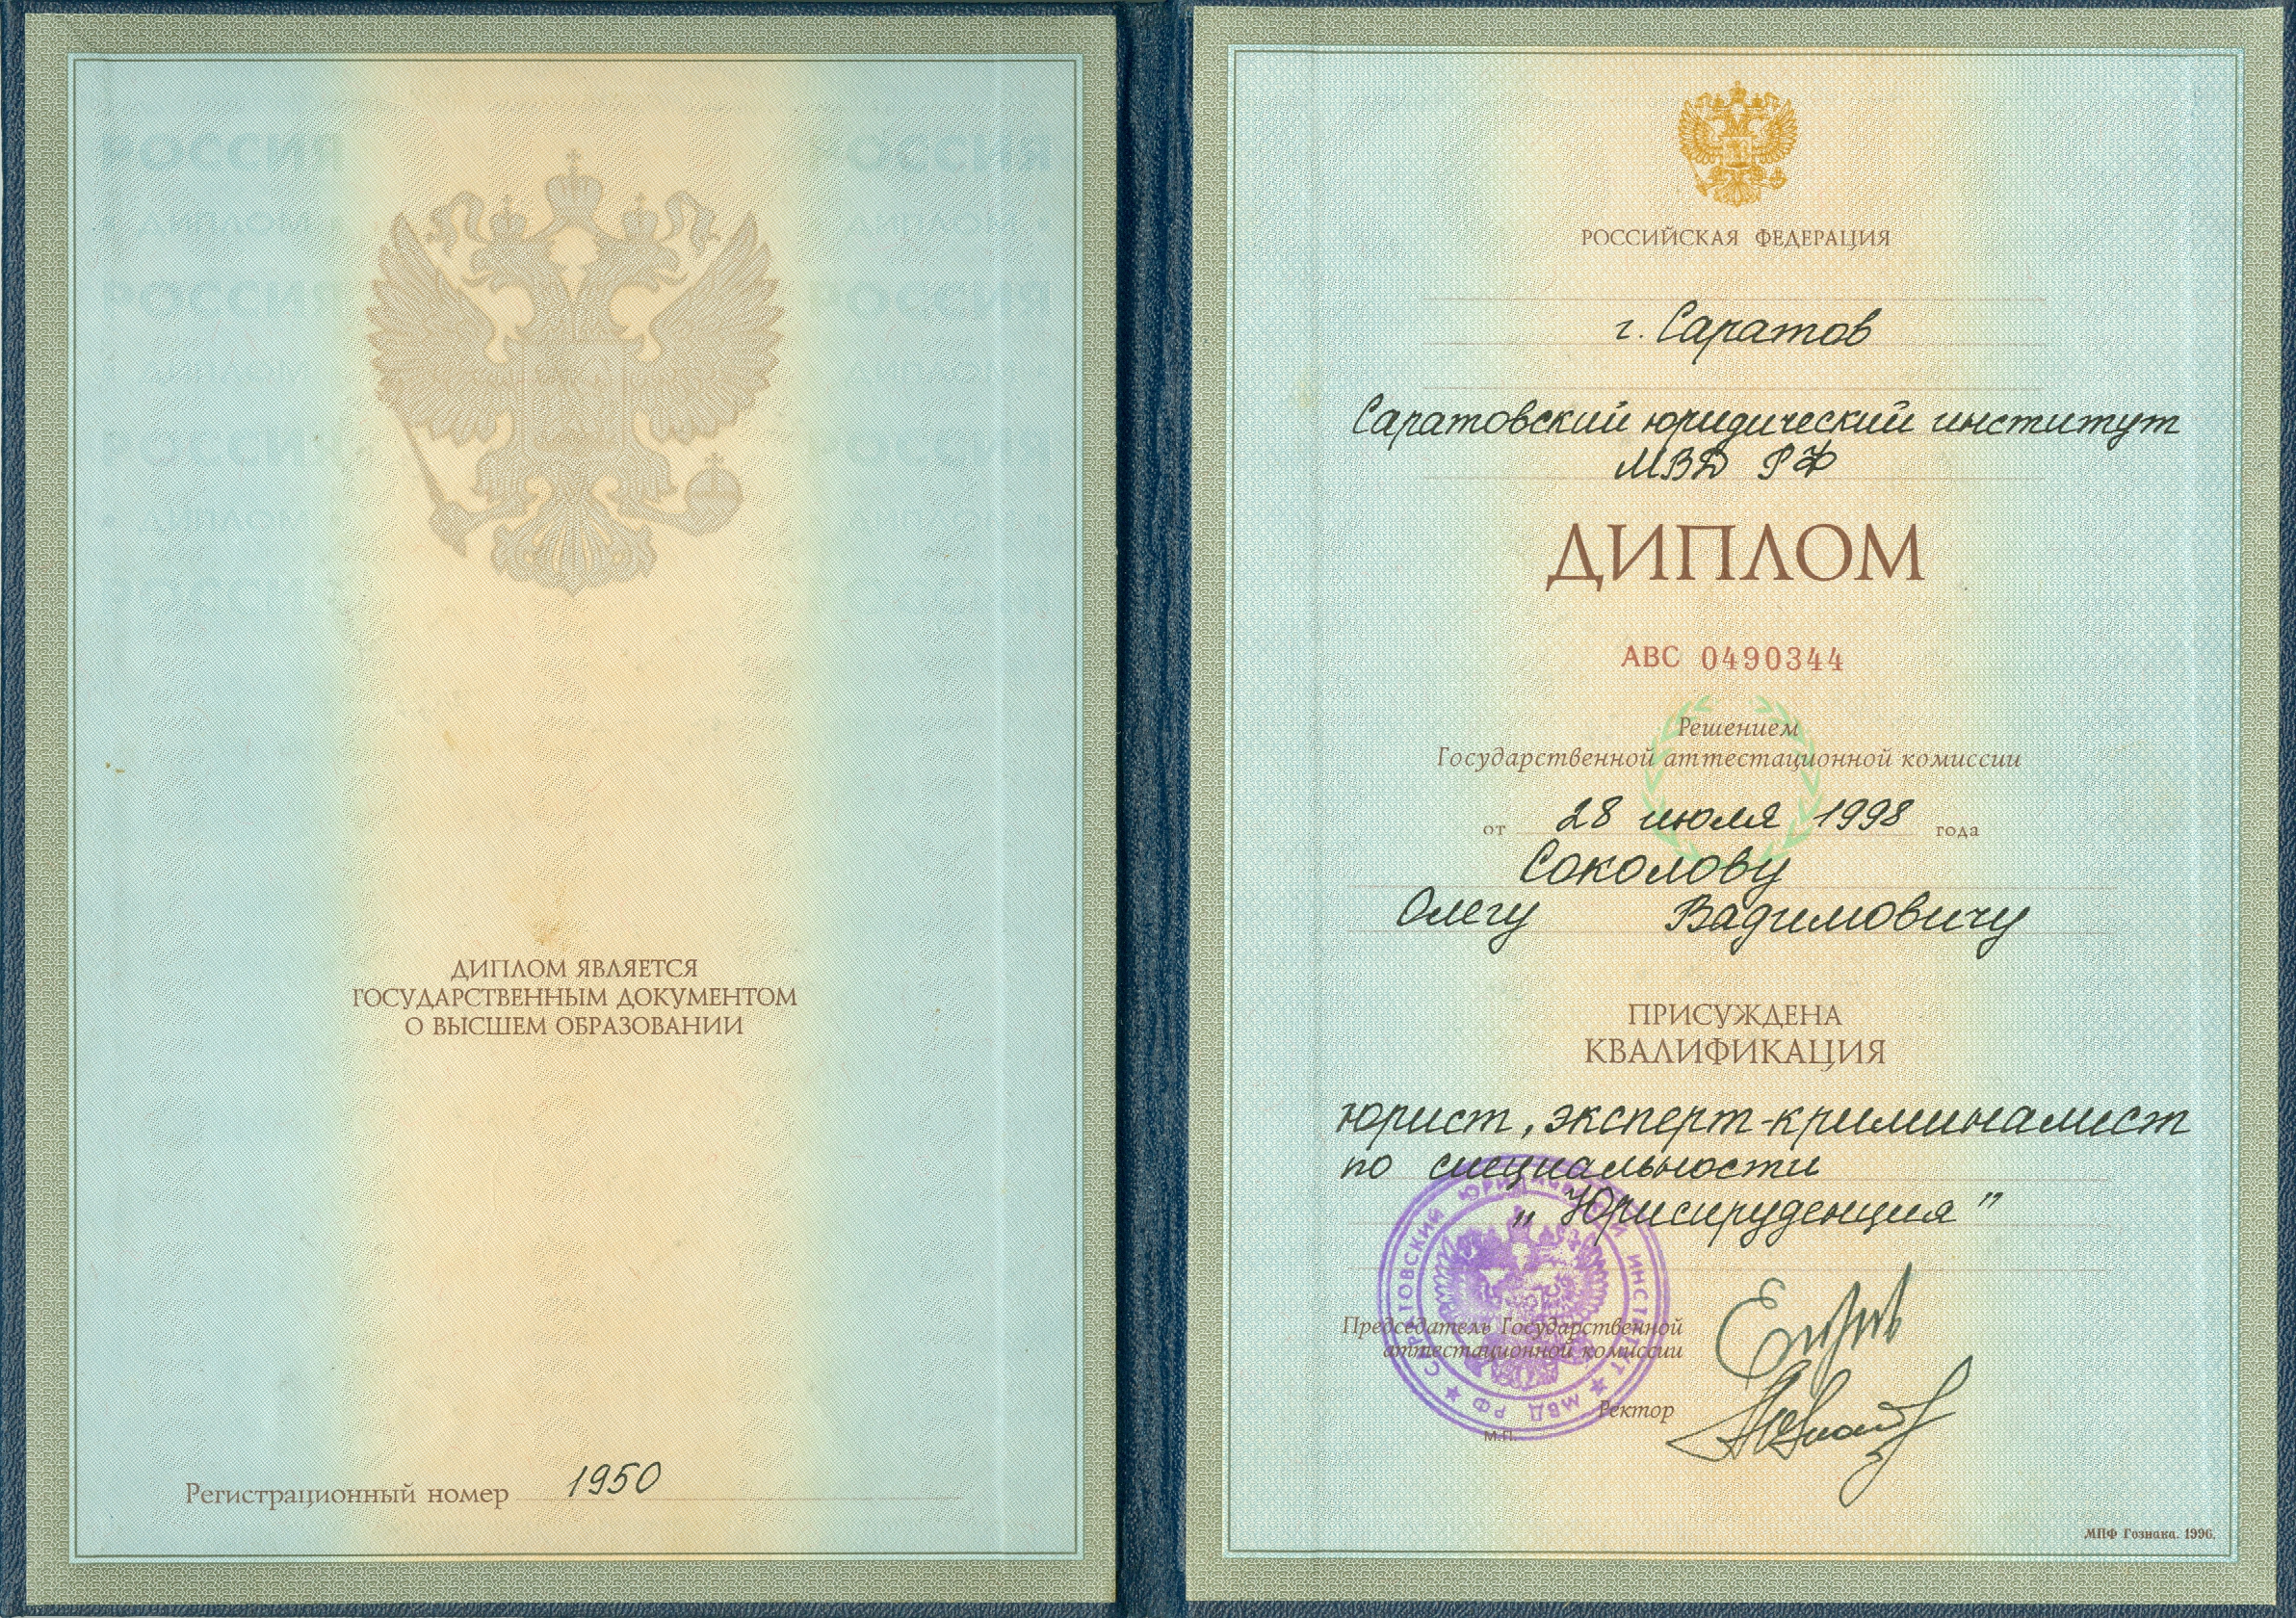 РОССИЯ РОССИЯ
ДИПЛОМ ДИПЛОМ
РОССИЯ РОССИЯ
ДИПЛОМ ДИПЛОМ
РОССИЯ РОССИЯ
ДИПЛОМ ДИПЛОМ
РОССИЯ РОССИЯ
ДИПЛОМ ЯВЛЯЕТСЯ
ГОСУДАРСТВЕННЫМ ДОКУМЕНТОМ
О ВЫСШЕМ ОБРАЗОВАНИИ
Регистрационный номер 1950
РОССИЙСКАЯ ФЕДЕРАЦИЯ
г. Саратов
Саратовский юридический институт
МВД РФ
ДИПЛОМ
АВС 0490344
Решением
Государственной аттестационной комиссии
от 28 июля 1998 года
Соколову
Олегу Вадимовичу
ПРИСУЖДЕНА
КВАЛИФИКАЦИЯ
юрист, эксперт-криминалист
по специальности
„Юриспруденция"
САРАТОВСКИЙ ЮРИДИЧЕСКИЙ ИНСТИТУТ ★ МВД РФ ★
Председатель Государственной
аттестационной комиссии
Ректор
М.П.
МПФ Гознака. 1996.